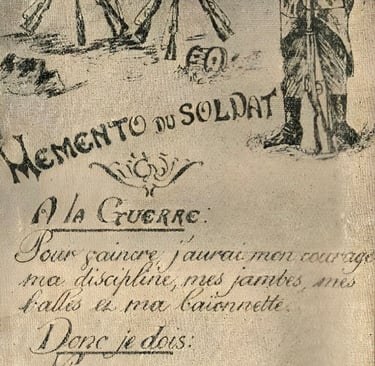 MEMENTO DU SOLDAT
A la GUERRE:
Pour vaincre, j'aurai mon courage
ma discipline, mes jambes, mes
balles et ma baïonnette.
Donc je dois: